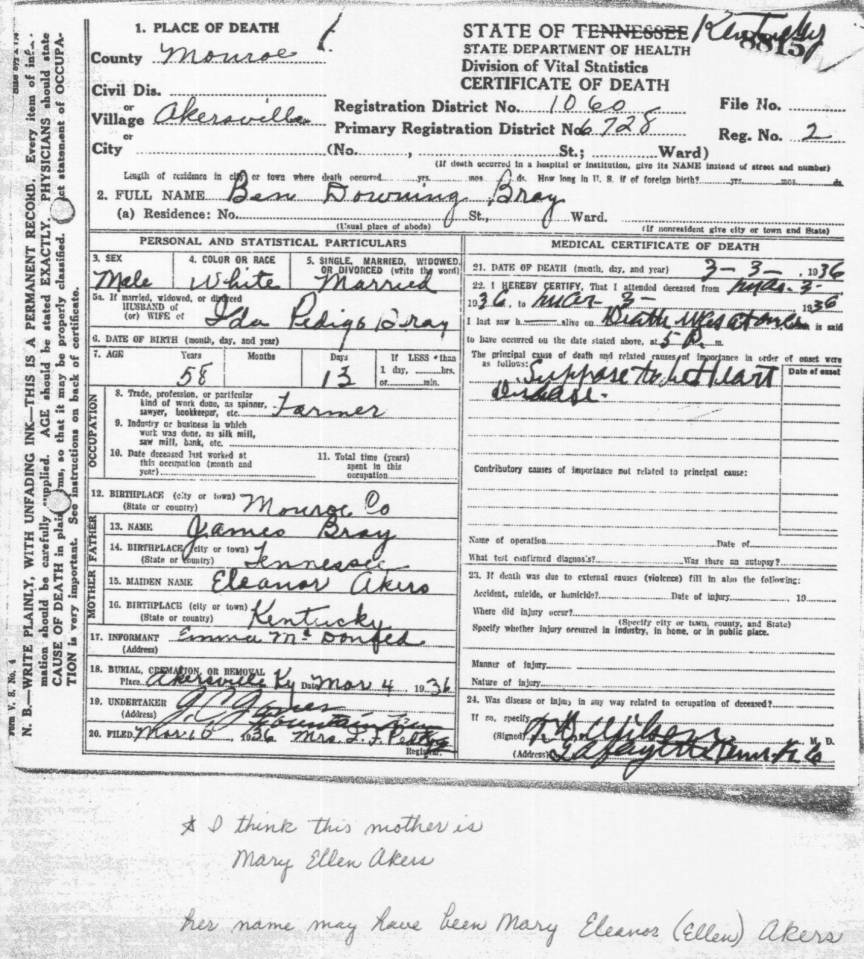 1. PLACE OF DEATH
County Monroe
Civil Dis.
or
Village Akersville
or
City (No. , St.; Ward)
STATE OF TENNESSEE Kentucky
8815
STATE DEPARTMENT OF HEALTH
Division of Vital Statistics
CERTIFICATE OF DEATH
Registration District No. 1060 File No.
Primary Registration District No. 6728 Reg. No. 2
(If death occurred in a hospital or institution, give its NAME instead of street and number)
Length of residence in city or town where death occurred yrs. mos. ds. How long in U. S. if of foreign birth? yrs. mos. ds.
2. FULL NAME Ben Downing Bray
(a) Residence: No. St., Ward.
(Usual place of abode) (If nonresident give city or town and State)
PERSONAL AND STATISTICAL PARTICULARS
3. SEX 4. COLOR OR RACE 5. SINGLE, MARRIED, WIDOWED, OR DIVORCED (write the word)
Male White Married
5a. If married, widowed, or divorced
HUSBAND of
(or) WIFE of Ida Pedigo Bray
6. DATE OF BIRTH (month, day, and year)
7. AGE Years Months Days If LESS than
1 day, hrs.
or min.
58 13
OCCUPATION
8. Trade, profession, or particular
kind of work done, as spinner,
sawyer, bookkeeper, etc. Farmer
9. Industry or business in which
work was done, as silk mill,
saw mill, bank, etc.
10. Date deceased last worked at
this occupation (month and
year)
11. Total time (years)
spent in this
occupation
12. BIRTHPLACE (city or town) Monroe Co
(State or country)
FATHER
13. NAME James Bray
14. BIRTHPLACE (city or town) Tennessee
(State or country)
MOTHER
15. MAIDEN NAME Eleanor Akers
16. BIRTHPLACE (city or town) Kentucky
(State or country)
17. INFORMANT Emma
(Address)
18. BURIAL, CREMATION, OR REMOVAL
Place Akersville Ky Date Mar 4, 1936
19. UNDERTAKER
(Address) Fountain Run
20. FILED Mar 10 1936 Mrs.
Registrar.
MEDICAL CERTIFICATE OF DEATH
21. DATE OF DEATH (month, day, and year) 3-3-, 1936
22. I HEREBY CERTIFY, That I attended deceased from Mar. 3-
1936, to Mar 3- 1936
I last saw h alive on Death was at once is said
to have occurred on the date stated above, at 5 P. m.
The principal cause of death and related causes of importance in order of onset were
as follows: Date of onset
Suppose to be Heart
Disease.
Contributory causes of importance not related to principal cause:
Name of operation Date of
What test confirmed diagnosis? Was there an autopsy?
23. If death was due to external causes (violence) fill in also the following:
Accident, suicide, or homicide? Date of injury , 19
Where did injury occur?
(Specify city or town, county, and State)
Specify whether injury occurred in industry, in home, or in public place.
Manner of injury
Nature of injury
24. Was disease or injury in any way related to occupation of deceased?
If so, specify
(Signed) Wilson M. D.
(Address) Lafayette Tenn
Form V. S. No. 4
N. B.—WRITE PLAINLY, WITH UNFADING INK—THIS IS A PERMANENT RECORD. Every item of
mation should be carefully supplied. AGE should be stated EXACTLY. PHYSICIANS should state
CAUSE OF DEATH in plain so that it may be properly classified. statement of OCCUPA-
TION is very important. See instructions on back of certificate.
* I think this mother is
Mary Ellen Akers
her name may have been Mary Eleanor (Ellen) Akers